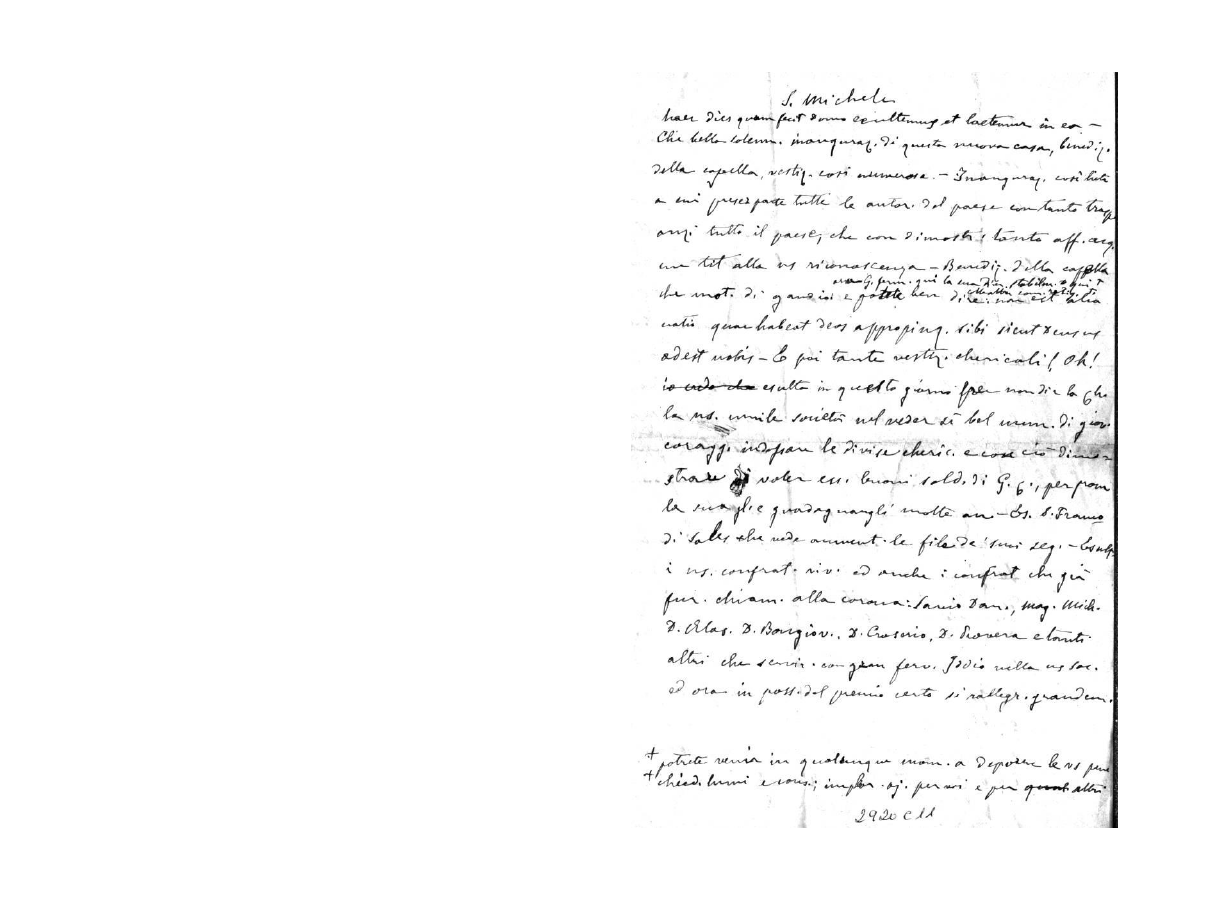 S. Michele
haec dies quam fecit Domus exultemus et laetemur in ea —
Che bella solenn. inauguraz. di questa nuova casa, benediz.
della capella, vestiz. così numerosa. — Inauguraz. così lieta
a cui preser parte tutte le autor. del paese con tanto trasp
anzi tutto il paese, che con dimostr tanta aff. acq.
un tit alla ns riconoscenza — Benediz. della cappella
ora G. ferm. qui la sua stabilm. e qui
che mot. di gaudio e potete ben dire: non est alia
natio quae habeat deos appropinq. sibi sicut Deus ns
adest nobis — E poi tante vestiz. chericali! Oh!
io credo che esulta in questo giorno per non dir la Ch
la ns. umile società nel veder sì bel num. di giov.
coragg. indossare le divise cheric. e con ciò dimo-
strare di voler ess. buoni sold. di G. C., per prom
la sua gl. e guadagnargli molte an. — Es. S. Franco
di Sales che vede aument. le file de' suoi seg. — Esult
i ns. confrat. viv. ed anche i confrat che già
fur. chiam. alla corona: Savio Dom., Mag. Mich.
D. Alas. D. Bongiov., D. Croserio, D. Provera e tanti
altri che servir. con gran ferv. Iddio nella ns soc.
ed ora in poss. del premio certo si rallegr. grandem.
+ potrete venir in qualunque mom. a deporre le vs pene
+ chied. lumi e cons.; implor. aj. per voi e per quant altri
2920 C 11